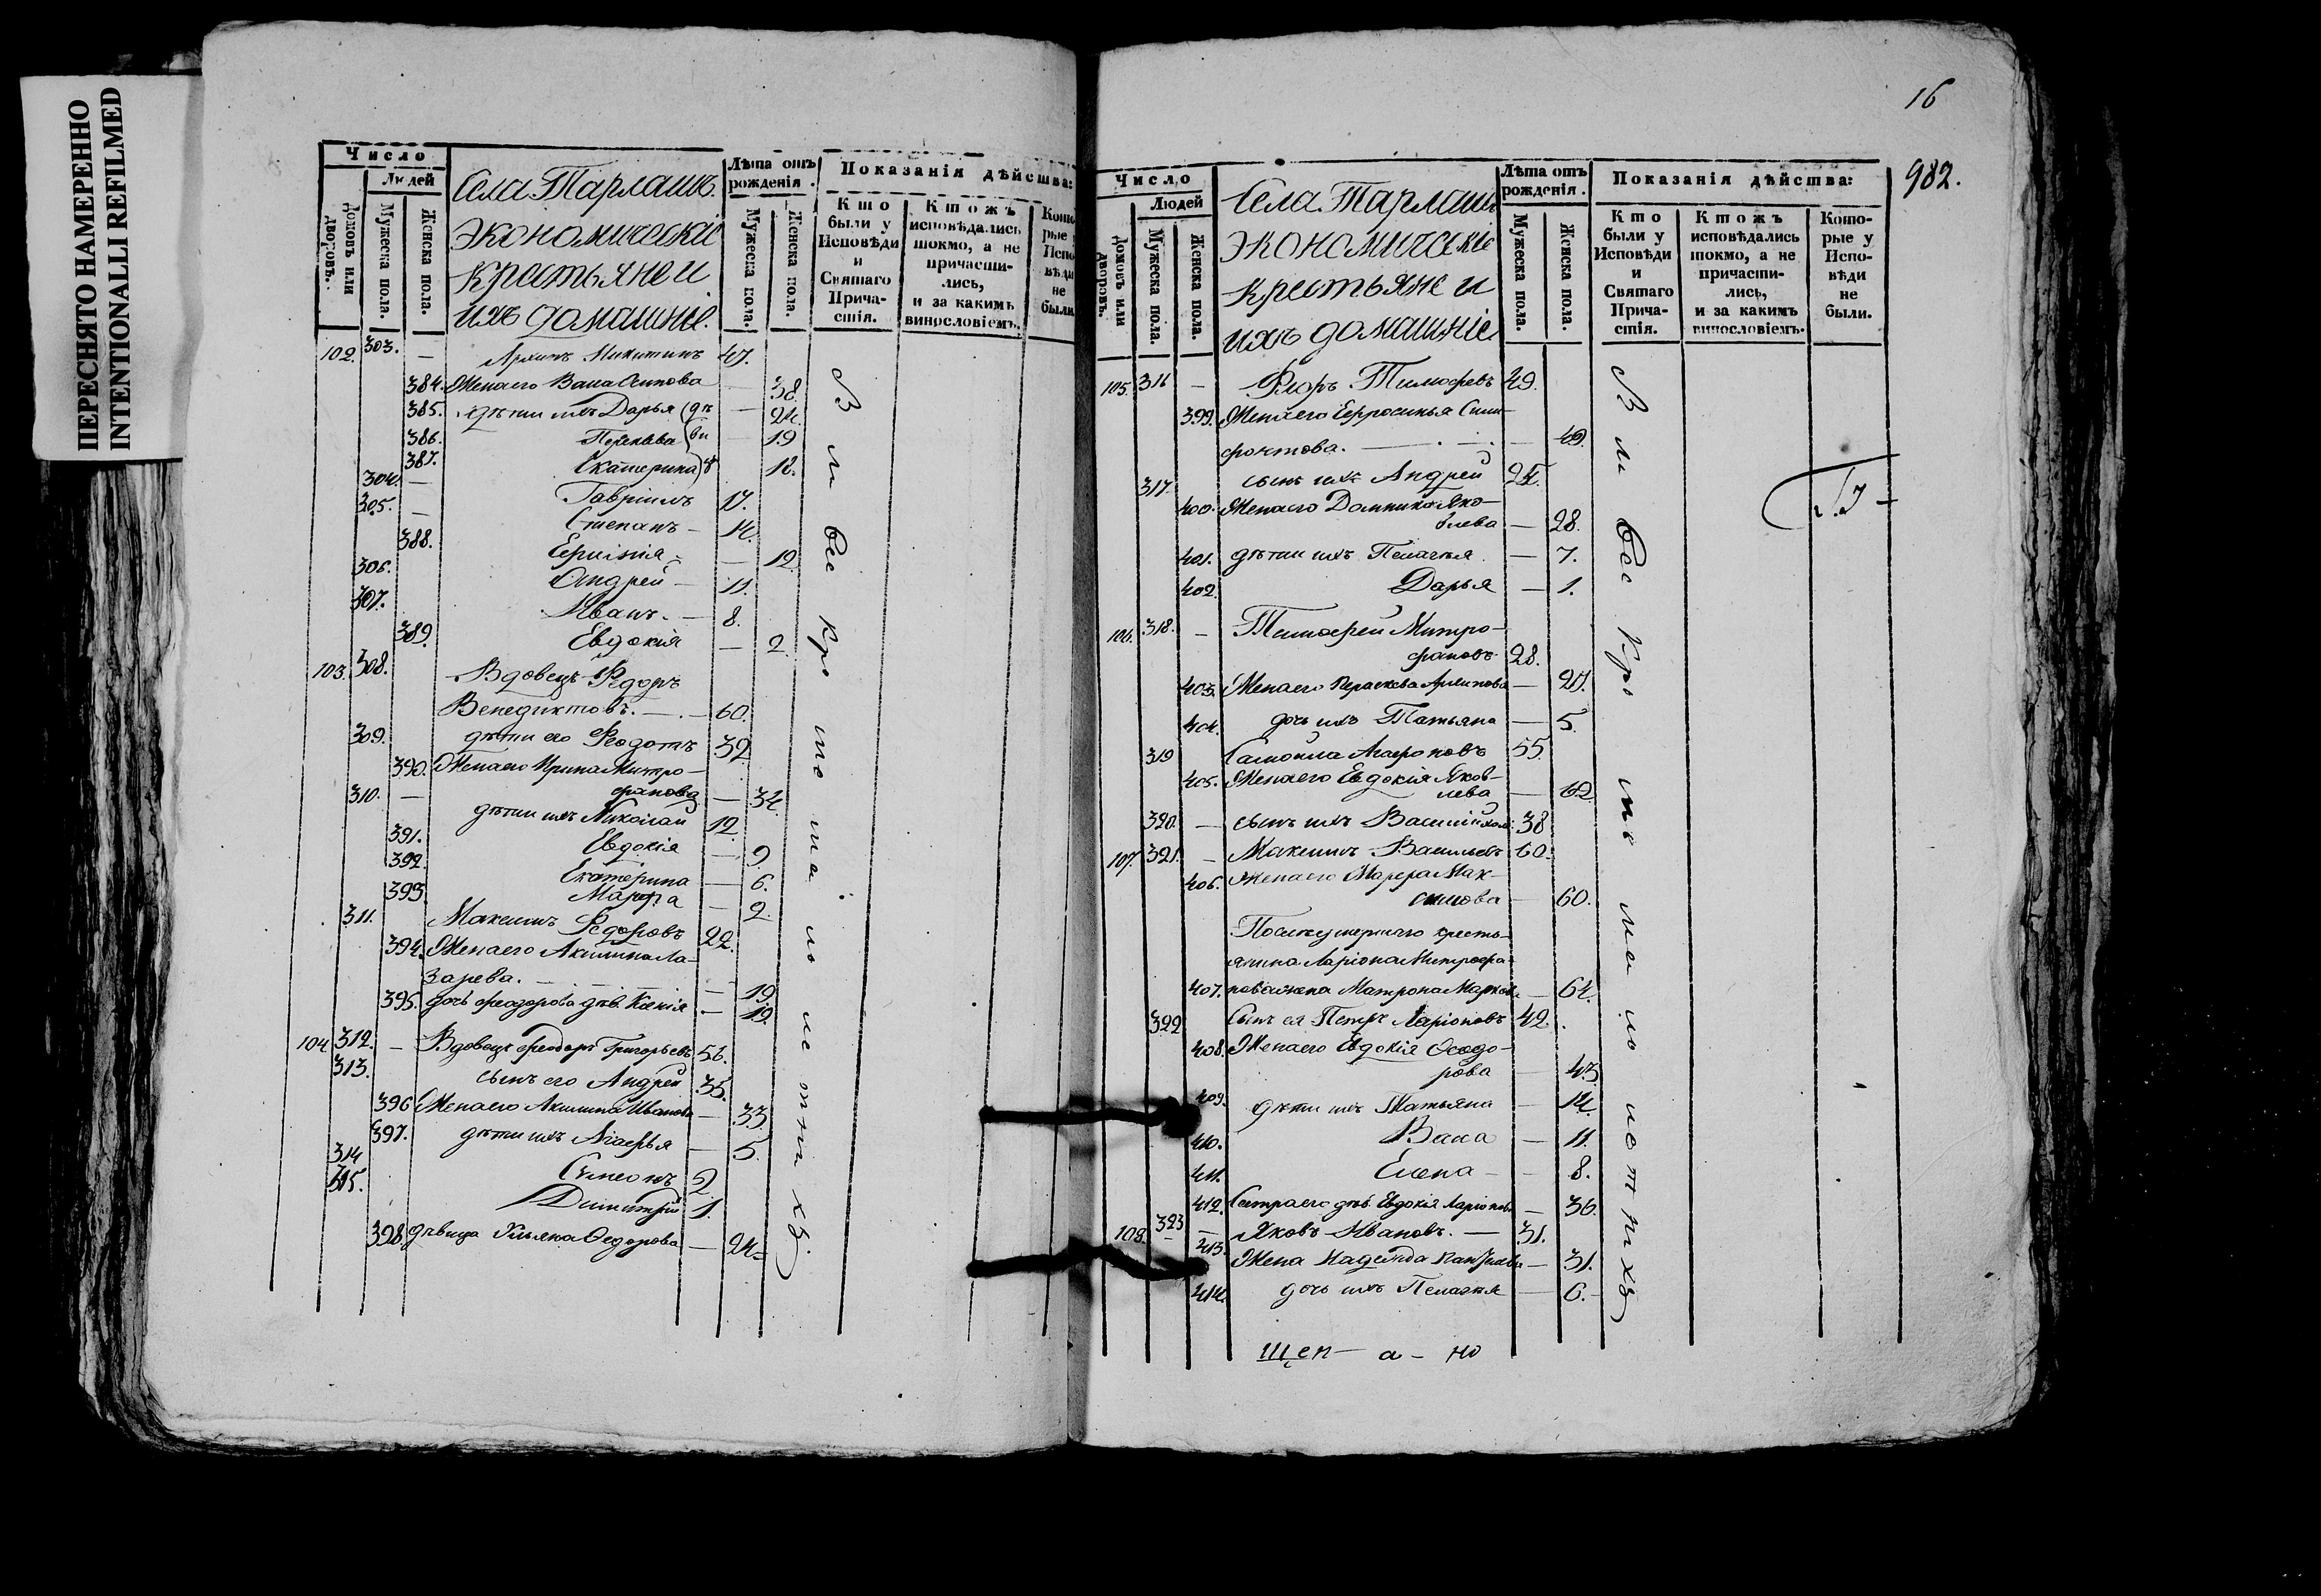 ПЕРЕСНЯТО НАМЕРЕННО
INTENTIONALLI REFILMED
Число
Людей
Домовъ или дворовъ.
Мужеска пола.
Женска пола.
Села Тарлашъ.
экономическіе
крестьяне и
ихъ домашніе.
Лѣта отъ рожденія.
Мужеска пола.
Женска пола.
Показанія дѣйства:
Кто были у Исповѣди и Святаго Причастія.
Ктожъ исповѣдались токмо, а не причастились, и за какимъ винословіемъ.
102. 303. — Архипъ Микитинъ 47.
384. Жена его Васа Осипова — 38.
385. дѣти ихъ Дарья — 24.
386. — 19
387. Екатерина — 18.
304. — Гавріилъ 17.
305. — Степанъ — 14.
388. — 12
306. Андрей — 11.
307. Иванъ. — 8.
389. Евдокія — 2.
103. 308. Вдовецъ Ѳедоръ
Венедиктовъ. — 60.
309. дѣти его Ѳеодотъ 32
390. Жена его Ирина Митро-
фанова — 34.
310. — дѣти ихъ Николай 12
391. Евдокія — 9
392. Екатерина — 6.
393. Марфа — 2.
311. Максимъ Ѳедоровъ 22.
394. Жена его Акилина Ла-
зарева. — 19.
395. дочь Феодорова дѣв. Ксенія — 19.
104. 312. — Вдовецъ Феодоръ Григорьевъ 56.
313. сынъ его Андрей 35.
396 Жена его Акилина Иванова — 33
397. дѣти ихъ Агафья — 5.
314 Симеонъ 2
315. Димитрій 1.
398. дѣвица Ульяна Ѳедорова — 24
Всѣ
кромѣ
малолетныхъ
16
982.
Число
Людей
Домовъ или дворовъ.
Мужеска пола.
Женска пола.
Села Тарлашъ
экономическіе
крестьяне и
ихъ домашніе
Лѣта отъ рожденія.
Мужеска пола.
Женска пола.
Показанія дѣйства:
Кто были у Исповѣди и Святаго Причастія.
Ктожъ исповѣдались токмо, а не причастились, и за какимъ винословіемъ.
Которые у Исповѣди не были.
105. 316 — Тимофевъ 49.
399. Жена его Ефросинья
— 49.
317. сынъ ихъ Андрей 25.
400. Жена его Домника Яко-
влева — 28.
401. дѣти ихъ Пелагея — 7.
402. Дарья — 1.
106. 318. — Тимофей Митро-
фановъ 28.
403. Жена его Параскева Архипова — 27.
404. дочь ихъ Татьяна — 5.
319 Самойла Агафоновъ 55.
405. Жена его Евдокія Яков-
лева — 62
320. — сынъ ихъ Василій 38
107. 321. — Максимъ Васильевъ 60.
406. Жена его Марфа Мак-
симова — 60.
Послѣ умершаго кресть-
янина Ларіона Митрофа-
407. нова жена Матрона Маркова — 64.
322 Сынъ ея Петръ Ларіоновъ 42.
408. Жена его Евдокія Ѳеодо-
рова — 43
409. дѣти ихъ Татьяна — 14.
410. Васа — 11.
411. Елена — 8.
412. Сестра его дѣв. Евдокія Ларіонова — 36.
108. 323 — Яковъ Ивановъ. — 31.
413. Жена Надежда — 31.
414. дочь ихъ Пелагея — 6.
Всѣ
кромѣ
малолетныхъ
щен — а — но